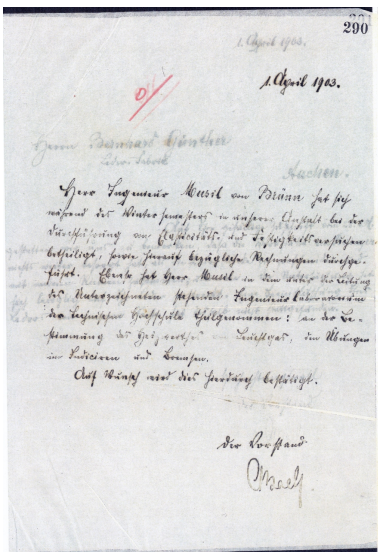 290
1. April 1903.
1. April 1903.
Herrn Bernhard Günther
Aachen.
Herr Ingenieur Musil von Brünn hat sich
während des Wintersemesters in unserer Anstalt bei der
Durchführung von Elasticitäts- und Festigkeitsversuchen
betheiligt, sowie hierauf bezügliche Rechnungen durchge-
führt. Ebenso hat Herr Musil in dem unter Leitung
des Unterzeichneten stehenden Ingenieurlaboratorium
der Technischen Hochschule theilgenommen: an der Be-
stimmung des Heizwerthes von Leuchtgas, den Übungen
im Indiciren und Bremsen.
Auf Wunsch wird dies hierdurch bestätigt.
Der Vorstand
CBach.